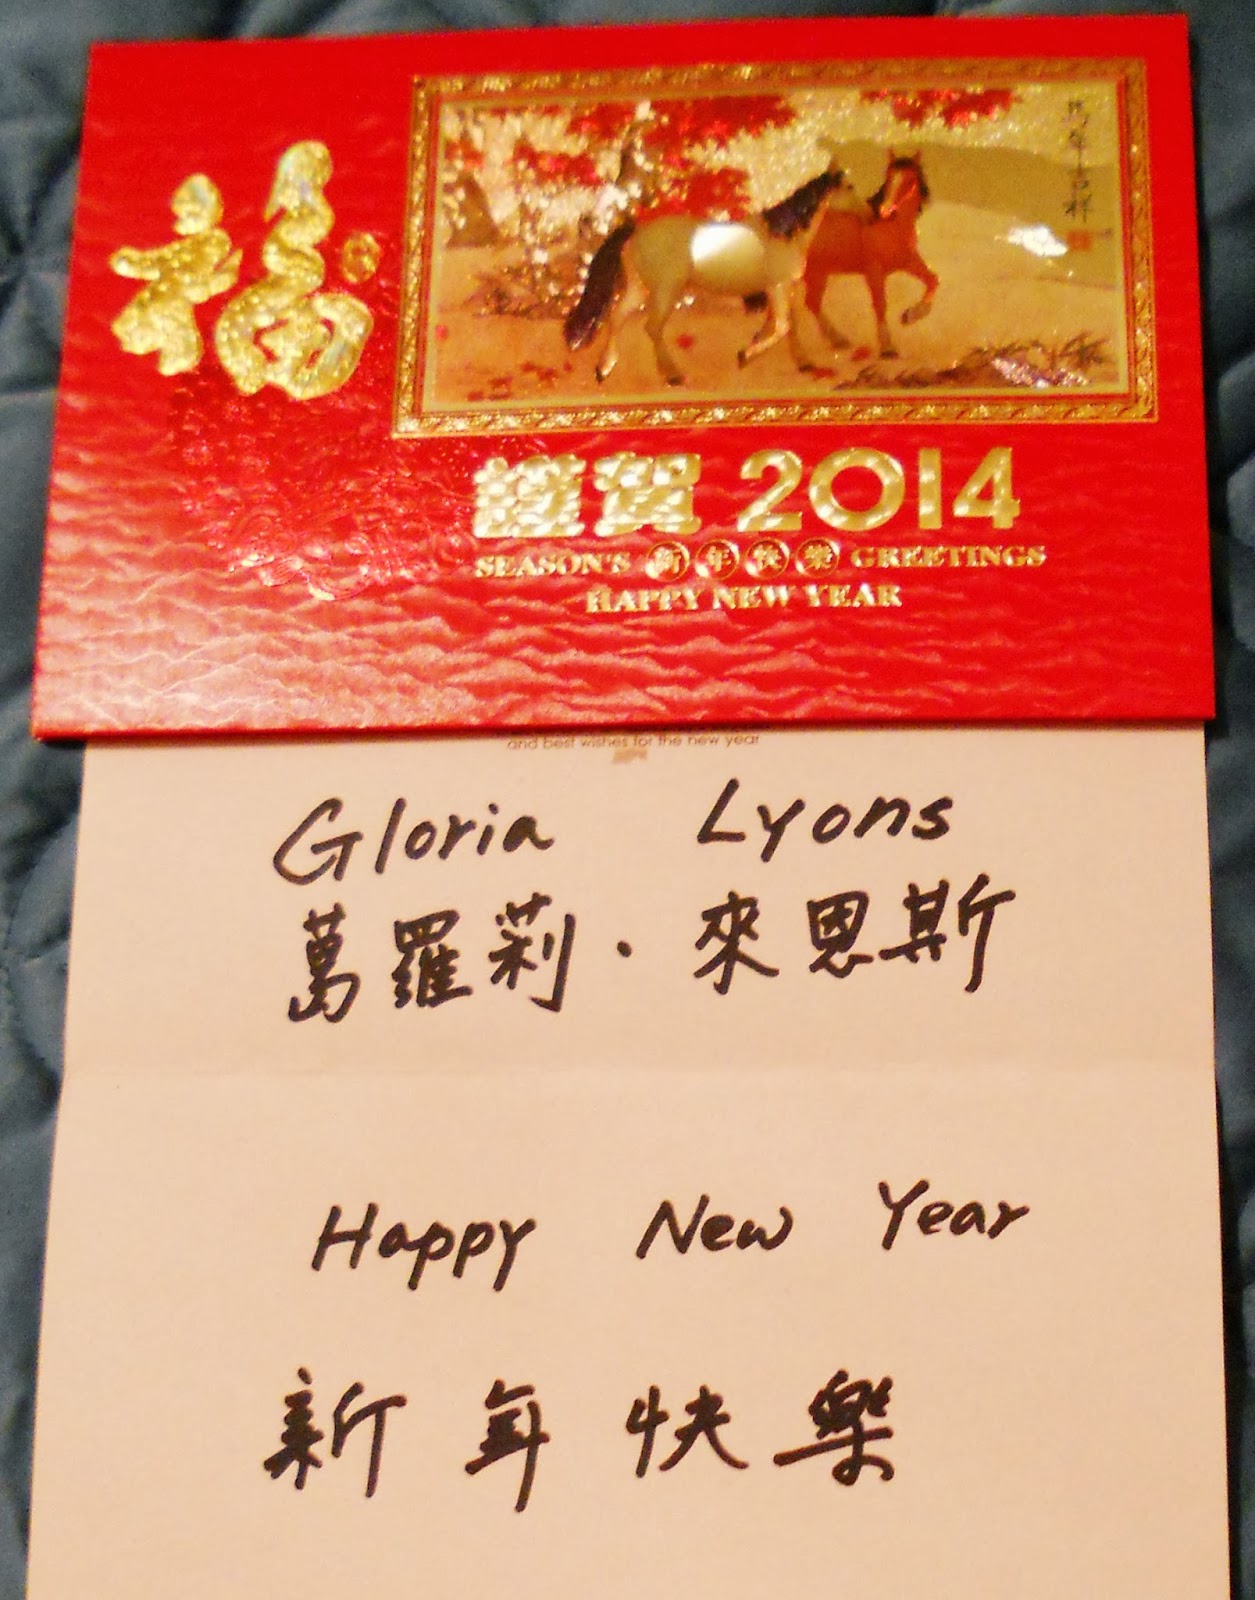 福
謹賀 2014
SEASON'S 新年快樂 GREETINGS
HAPPY NEW YEAR
and best wishes for the new year
Gloria Lyons
萬羅莉·來恩斯
Happy New Year
新年快樂